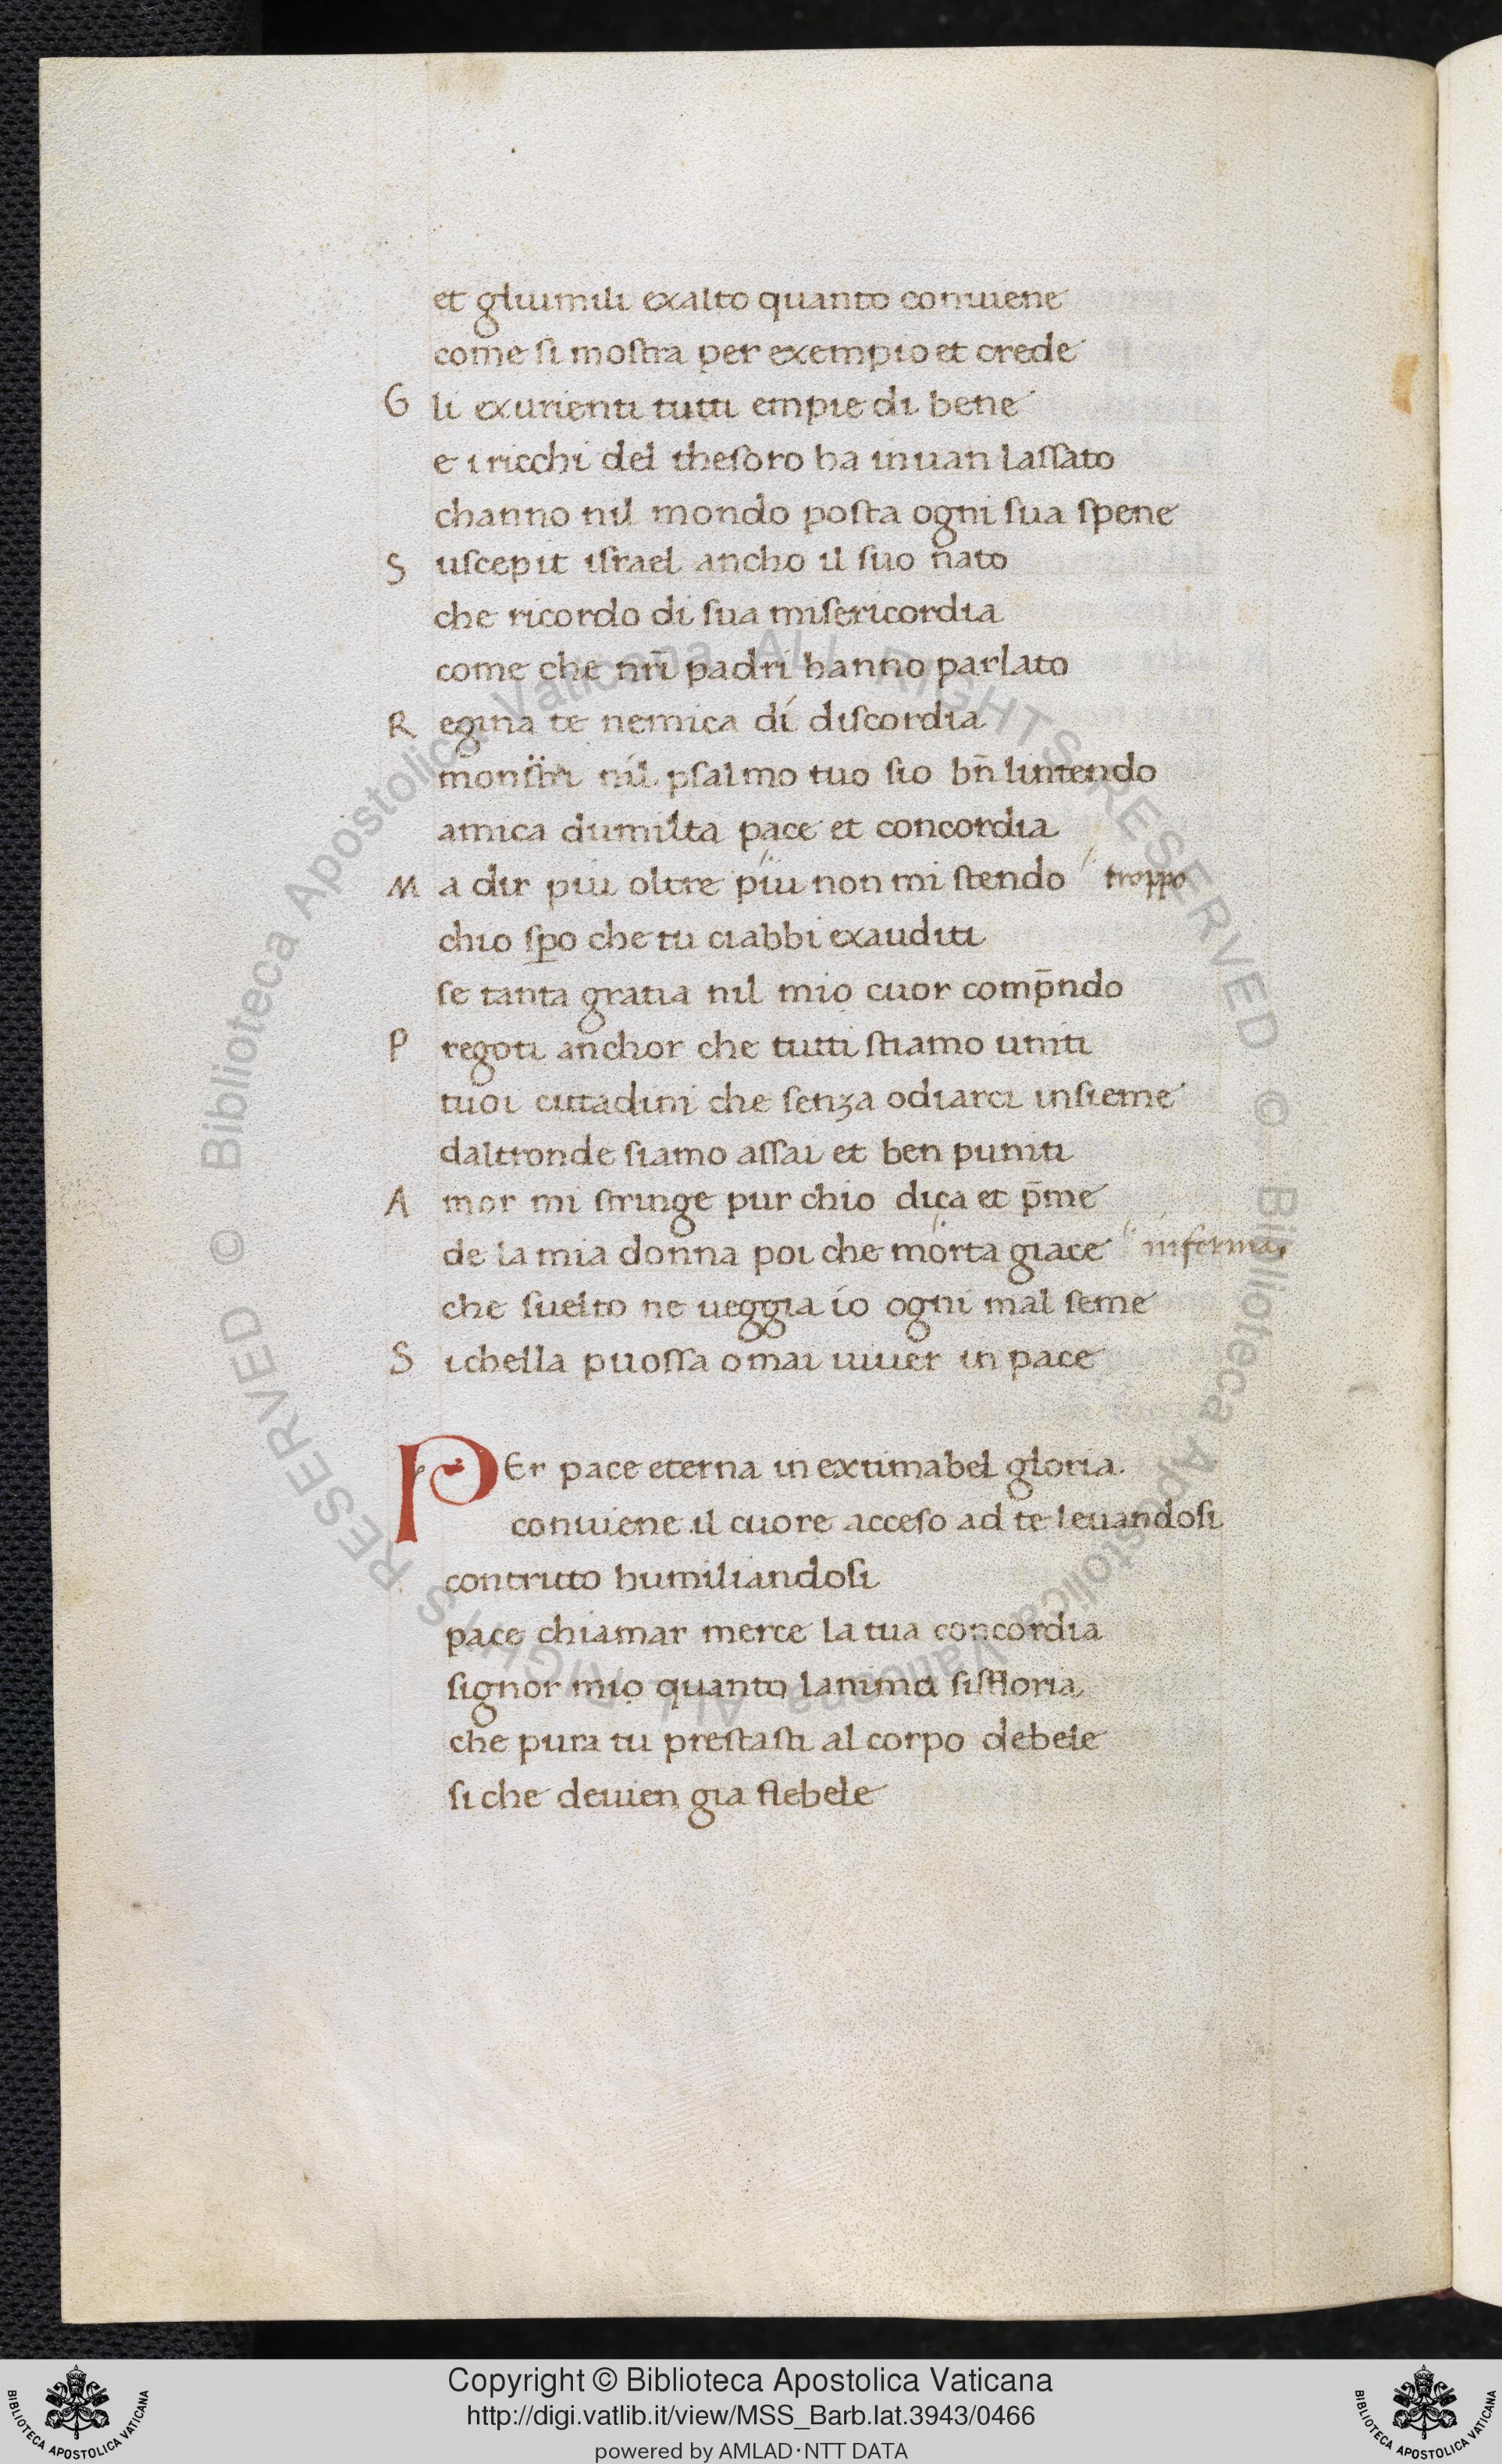 et gliumili exalto quanto conuiene
come si mostra per exempio et crede
G li exurienti tutti empie di bene
e i ricchi del thesoro ha inuan lassato
channo nil mondo posta ogni sua spene
S uscepit israel ancho il suo nato
che ricordo di sua misericordia
come che nr̄i padri hanno parlato
R egina te nemica dí discordia
monstri nil psalmo tuo sio bn̄ lintendo
amica dumilta pace et concordia
M a dir piu oltre piu non mi stendo troppo
chio sp̱o che tu ciabbi exauditi
se tanta gratia nil mio cuor comp̄ndo
P regoti anchor che tutti stiamo uniti
tuoi cittadini che senza odiarci insieme
daltronde siamo assai et ben puniti
A mor mi stringe pur chio dica et p̄me
de la mia donna poi che morta giace inferma
che suelto ne ueggia io ogni mal seme
S ichella puossa omai uiuer in pace
PEr pace eterna in extimabel gloria
conuiene il cuore acceso ad te leuandosi
contritto humiliandosi
pace chiamar merce la tua concordia
signor mio quanto lanima sisfloria
che pura tu prestasti al corpo debele
si che deuien gia flebele
Copyright © Biblioteca Apostolica Vaticana
http://digi.vatlib.it/view/MSS_Barb.lat.3943/0466
powered by AMLAD·NTT DATA
BIBLIOTECA APOSTOLICA VATICANA
BIBLIOTECA APOSTOLICA VATICANA
© Biblioteca Apostolica Vaticana ALL RIGHTS RESERVED © Biblioteca Apostolica Vaticana ALL RIGHTS RESERVED